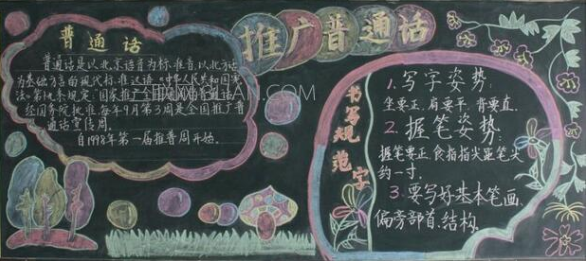 推广普通话
普通话
普通话是以北京语音为标准音,以北方话
为基础方言的现代标准汉语。《中华人民共和国宪
法》第19条规定:"国家推广全国
经国务院批准,每年9月第3周是全国推广普
通话宣传周。
自1998年第一届推普周开始。
书写规范字
1.写字姿势:
坐要正,肩要平,背要直。
2.握笔姿势:
握笔要正,食指指尖距笔尖
约一寸。
3.要写好基本笔画,
偏旁部首、结构。